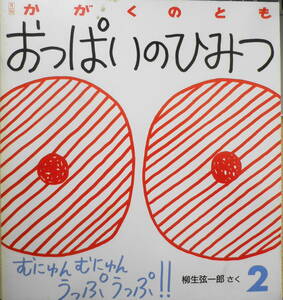 かがくのとも
おっぱいのひみつ
むにゅんむにゅん
うっぷうっぷ!!
柳生弦一郎 さく
2